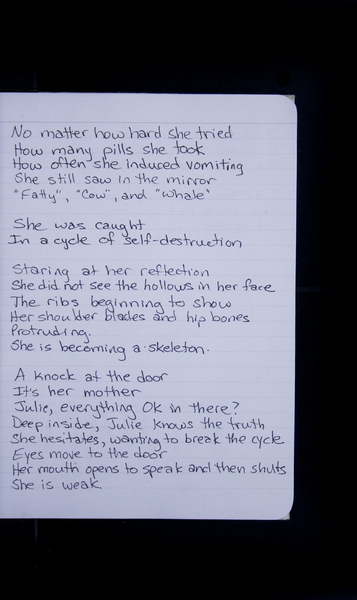 No matter how hard she tried
How many pills she took
How often she induced vomiting
She still saw in the mirror
"Fatty", "Cow", and "Whale"
She was caught
In a cycle of self-destruction
Staring at her reflection
She did not see the hollows in her face
The ribs beginning to show
Her shoulder blades and hip bones
Protruding.
She is becoming a skeleton.
A knock at the door
It's her mother
Julie, everything Ok in there?
Deep inside, Julie knows the truth
She hesitates, wanting to break the cycle
Eyes move to the door
Her mouth opens to speak and then shuts
She is weak.